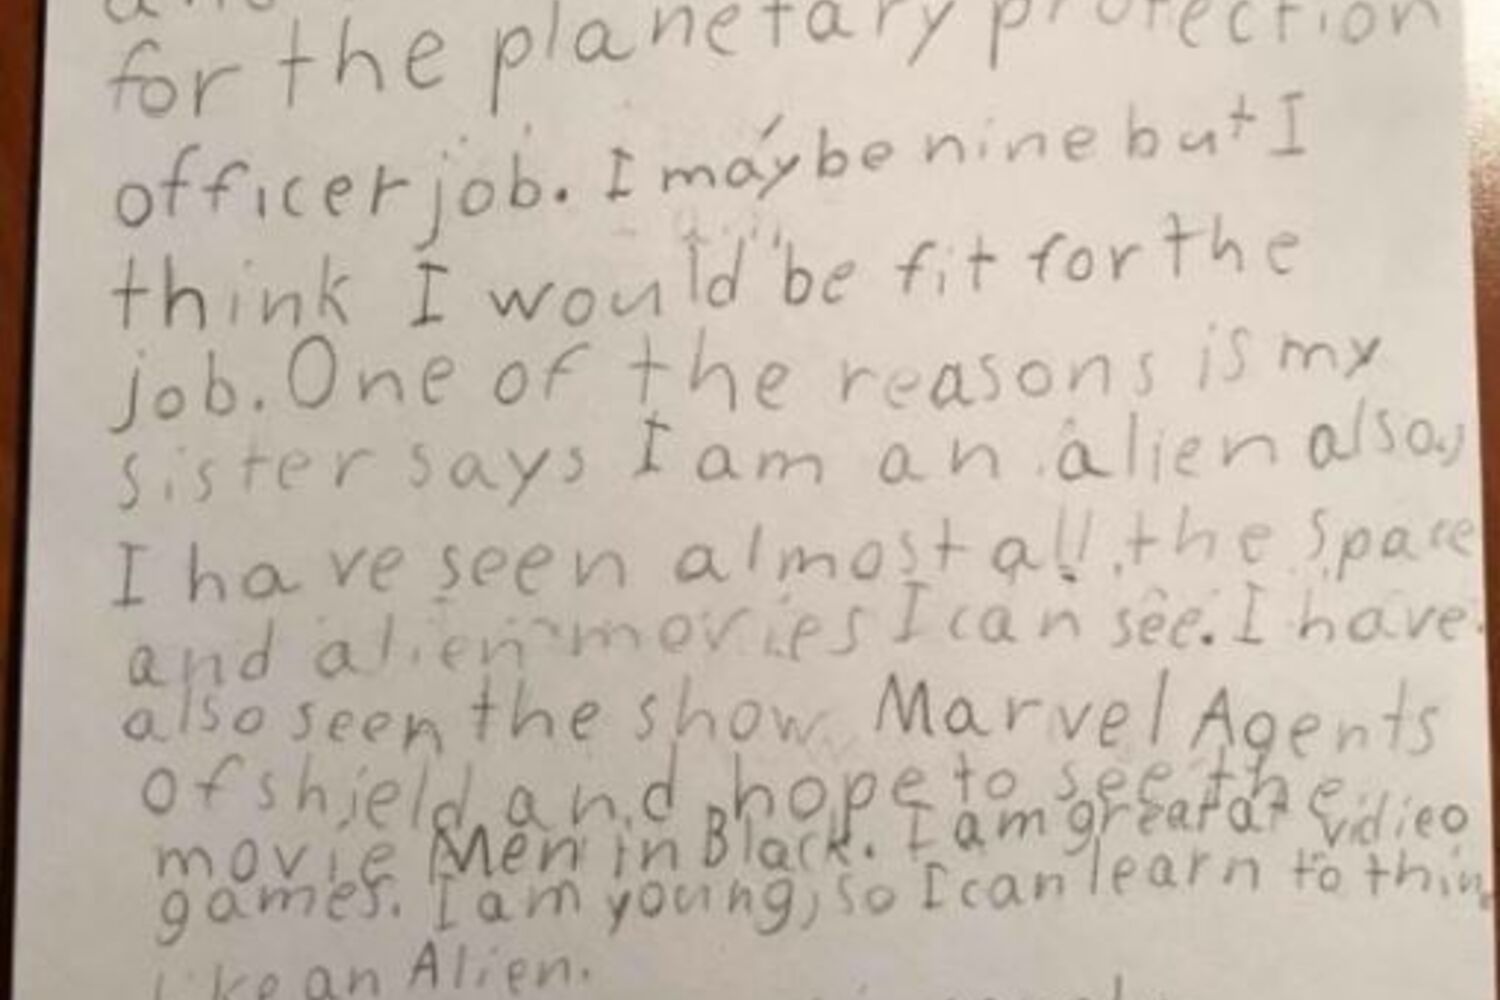 for the planetary protection
officer job. I may be nine but I
think I would be fit for the
job. One of the reasons is my
sister says I am an alien also,
I have seen almost all the space
and alien movies I can see. I have
also seen the show Marvel Agents
of shield and hope to see the
movie Men in Black. I am great at vidieo
games. I am young, so I can learn to thin
like an Alien.